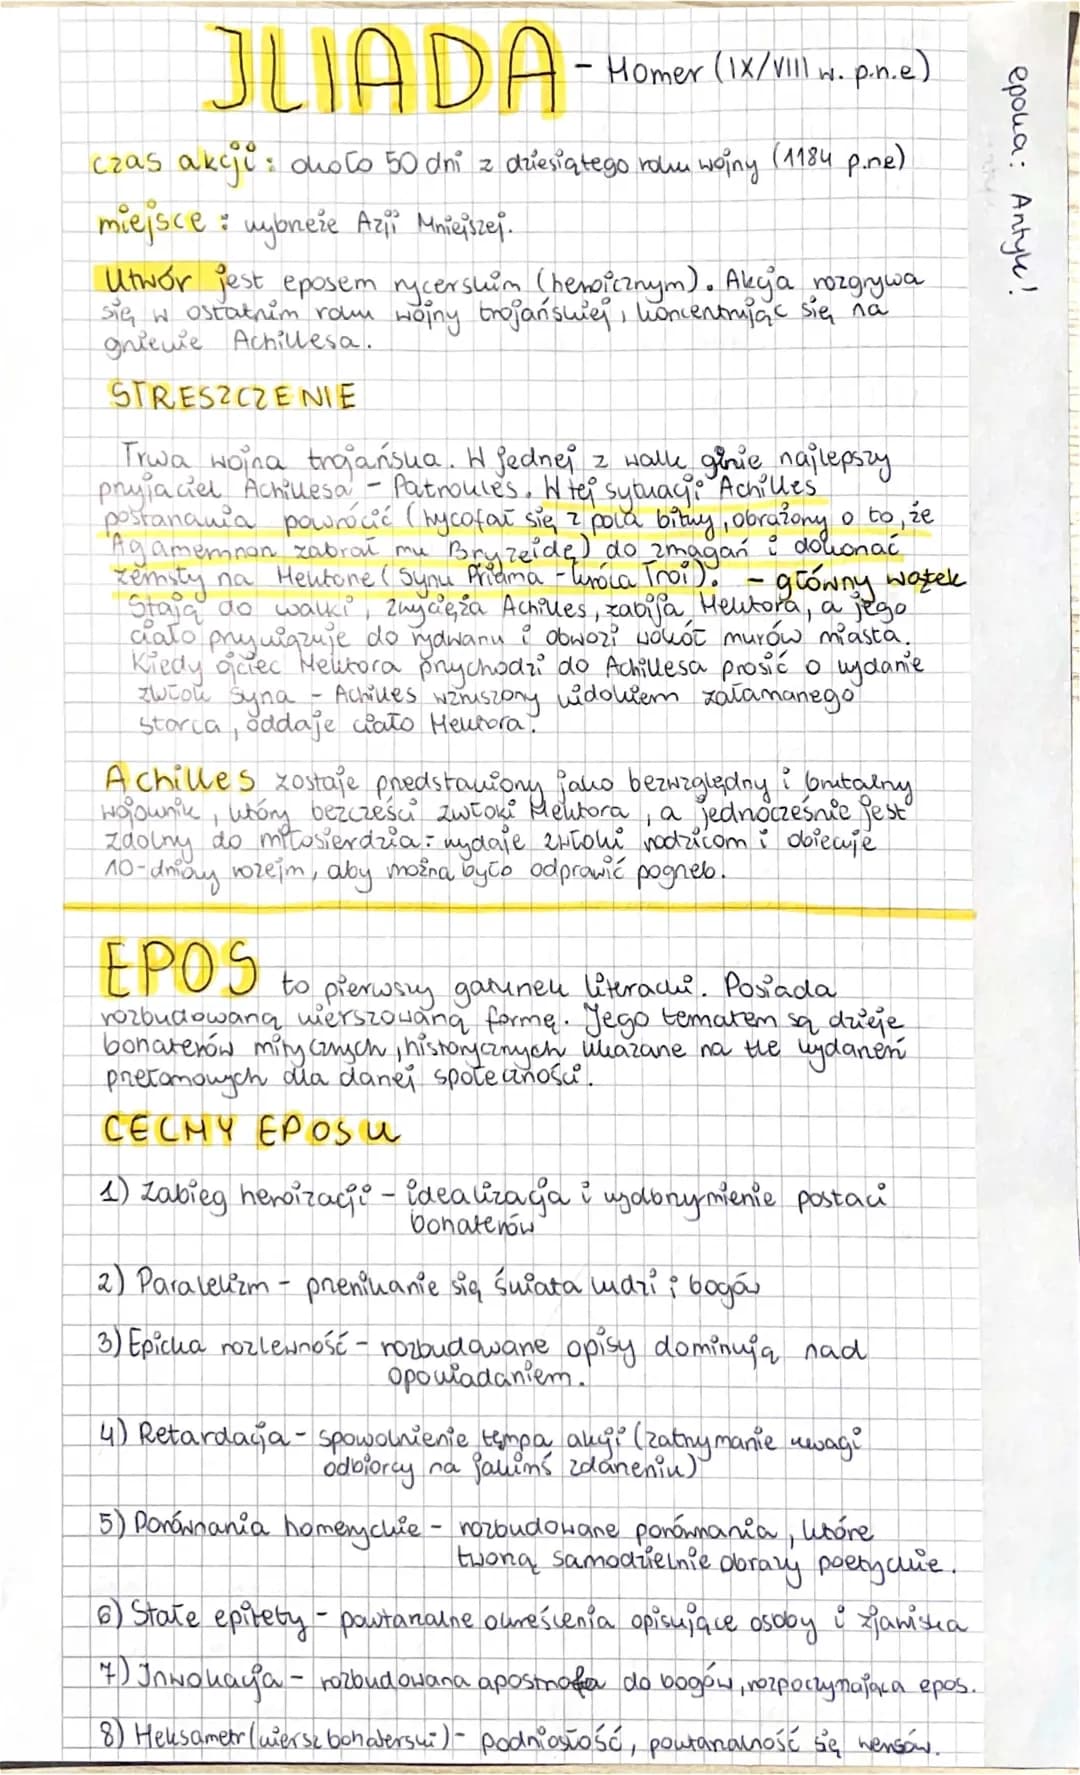 ILIADA - Homer (IX/VIII w. p.n.e)
epoka: Antyk!
czas akcji: około 50 dni z dziesiątego roku wojny (1184 p.ne)
miejsce: wybrzeże Azji Mniejszej.
Utwór jest eposem rycerskim (heroicznym). Akcja rozgrywa
się w ostatnim roku wojny trojańskiej, koncentrując się na
gniewie Achillesa.
STRESZCZENIE
Trwa wojna trojańska. W jednej z walk ginie najlepszy
przyjaciel Achillesa - Patrokles. W tej sytuacji Achilles
postanawia powrócić (wycofał się z pola bitwy, obrażony o to, że
Agamemnon zabrał mu Bryzeidę) do zmagań i dokonać
zemsty na Hektorze (synu Priama - króla Troi). - główny wątek
Stają do walki, zwycięża Achilles, zabija Hektora, a jego
ciało przywiązuje do rydwanu i obwozi wokół murów miasta.
Kiedy ojciec Hektora przychodzi do Achillesa prosić o wydanie
zwłok syna - Achilles wzruszony widokiem załamanego
starca, oddaje ciało Hektora.
Achilles zostaje przedstawiony jako bezwzględny i brutalny
wojownik, który bezcześci zwłoki Hektora, a jednocześnie jest
zdolny do miłosierdzia: wydaje zwłoki rodzicom i obiecuje
10-dniowy rozejm, aby można było odprawić pogrzeb.
EPOS to pierwszy gatunek literacki. Posiada
rozbudowaną wierszowaną formę. Jego tematem są dzieje
bohaterów mitycznych, historycznych ukazane na tle wydarzeń
przełomowych dla danej społeczności.
CECHY EPOSU
1) Zabieg heroizacji - idealizacja i wyolbrzymienie postaci
bohaterów
2) Paralelizm - przenikanie się świata ludzi i bogów
3) Epicka rozlewność - rozbudowane opisy dominują nad
opowiadaniem.
4) Retardacja - spowolnienie tempa akcji (zatrzymanie uwagi
odbiorcy na jakimś zdarzeniu)
5) Porównania homeryckie - rozbudowane porównania, które
tworzą samodzielnie obrazy poetyckie.
6) Stałe epitety - powtarzalne określenia opisujące osoby i zjawiska
7) Inwokacja - rozbudowana apostrofa do bogów, rozpoczynająca epos.
8) Heksametr (wiersz bohaterski) - podniosłość, powtarzalność się wersów.